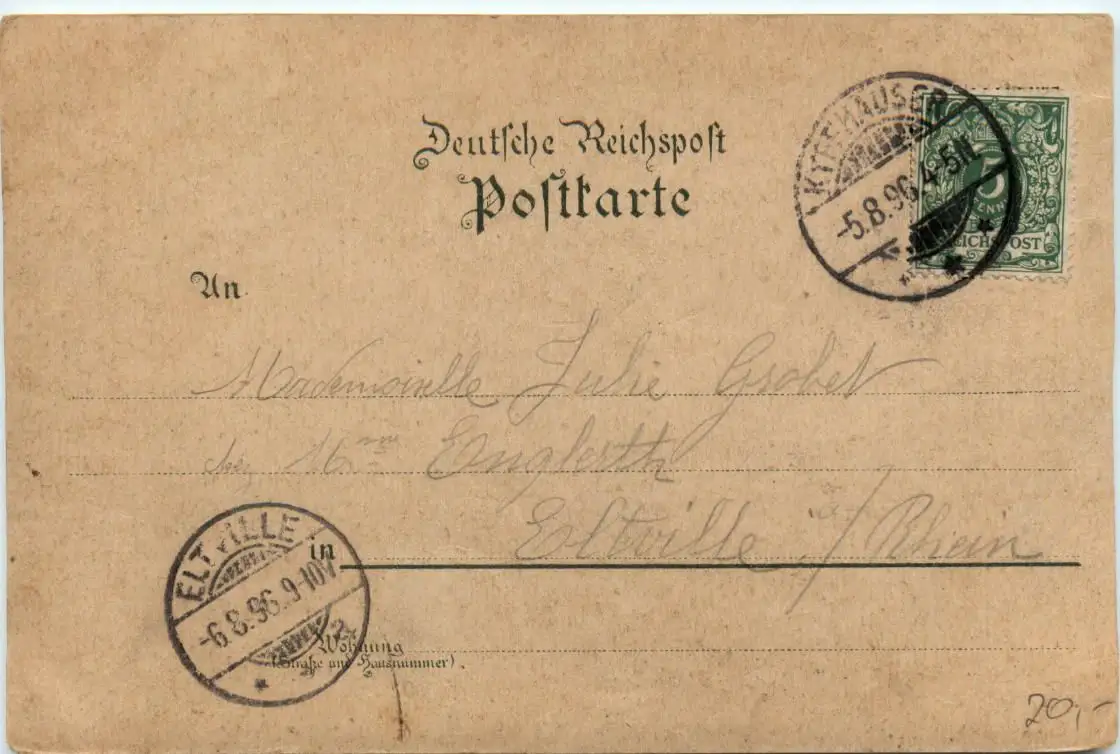 Deutsche Reichspost
Postkarte
KYFFHÄUSER
-5.8.96.4-5N
5
REICHSPOST
An
Mademoiselle Julie Grobet
chez Mme Englerth
Eltville /Rhein
in
ELTVILLE
-6.8.96.9-10V
Wohnung
(Straße und Hausnummer)
20,-